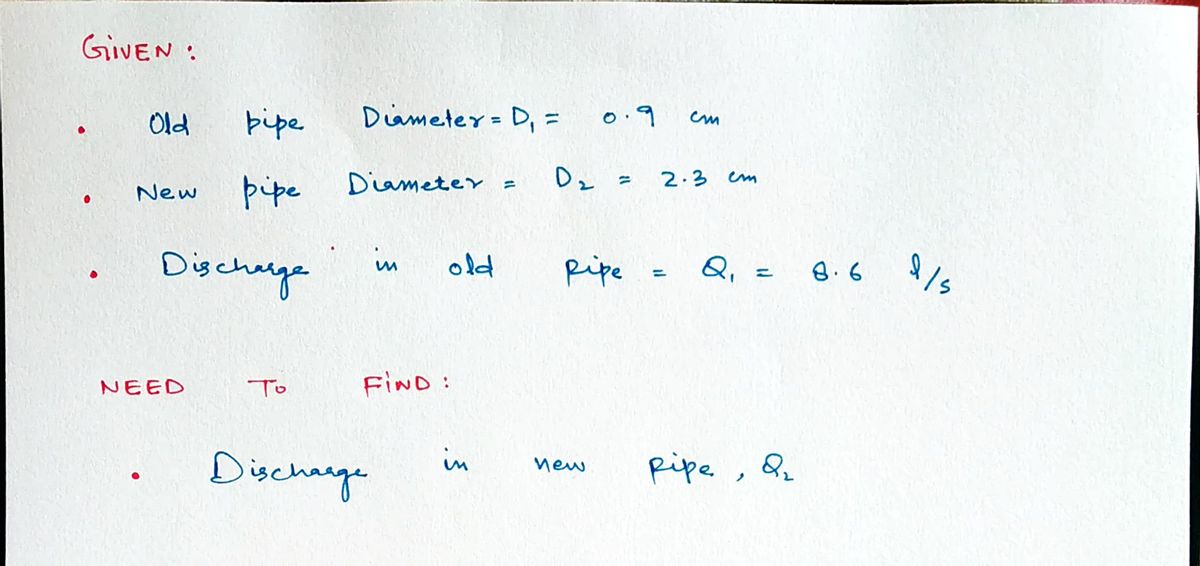 GIVEN :
• Old pipe Diameter = D₁ = 0.9 cm
• New pipe Diameter = D₂ = 2.3 cm
• Discharge in old pipe = Q₁ = 8.6 l/s
NEED TO FIND :
• Discharge in new pipe , Q₂